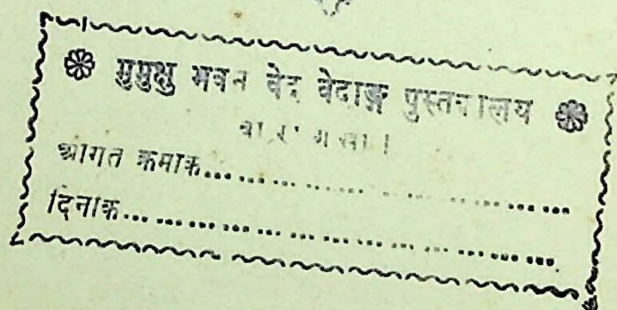 मुमुक्षु भवन वेद वेदाङ्ग पुस्तकालय
वाराणसी ।
आगत क्रमाक........................................
दिनांक........................................